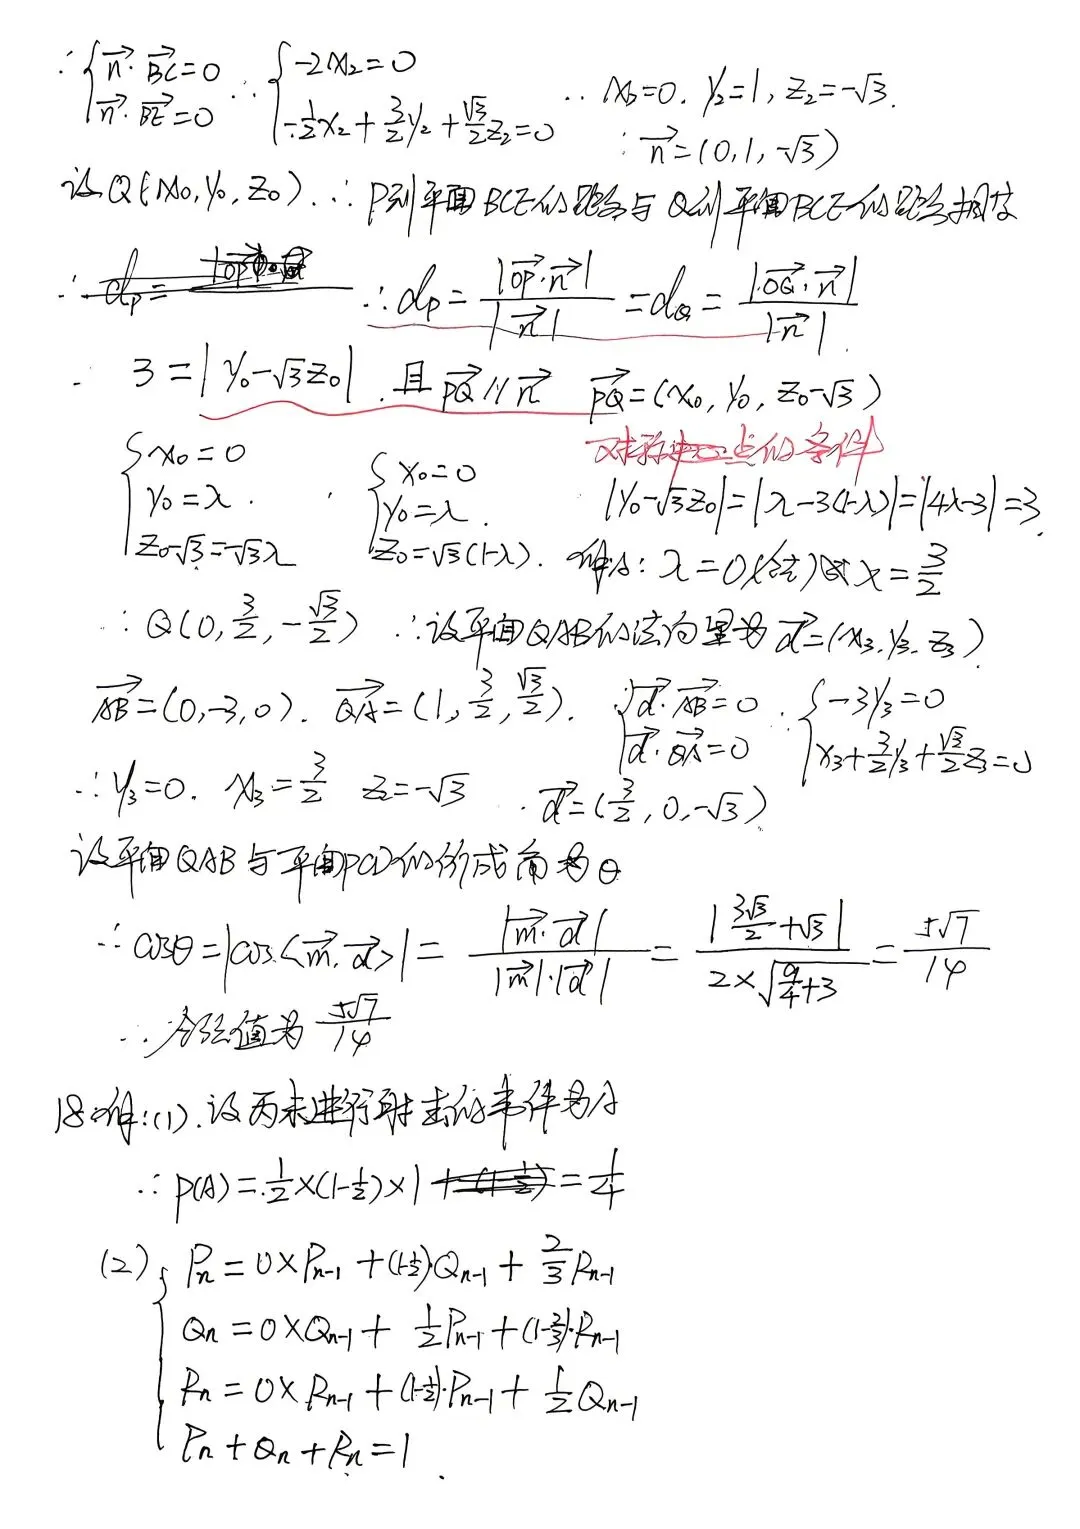 ∴ {n⃗·BC⃗=0  n⃗·BE⃗=0 ∴ {-2x₂=0  -1/2x₂+3/2y₂+√3/2z₂=0 ∴ x₂=0. y₂=1, z₂=-√3.
∴ n⃗=(0,1,-√3)
设Q(x₀,y₀,z₀). ∴ P到平面BCE的距离与Q到平面BCE的距离相等
∴ dₚ= ∴ dₚ=|OP⃗·n⃗|/|n⃗|=d_Q=|OQ⃗·n⃗|/|n⃗|.
∴ 3=|y₀-√3z₀|. 且PQ⃗//n⃗ PQ⃗=(x₀,y₀,z₀-√3)
对称点的条件
{x₀=0  y₀=λ.  z₀-√3=-√3λ ∴ {x₀=0  y₀=λ.  z₀=√3(1-λ). |y₀-√3z₀|=|λ-3(1-λ)|=|4λ-3|=3.
解得: λ=0(舍去)或λ=3/2
∴ Q(0,3/2,-√3/2) ∴设平面QAB的法向量为d⃗=(x₃,y₃,z₃)
AB⃗=(0,-3,0). QA⃗=(1,3/2,√3/2). ∴{d⃗·AB⃗=0  d⃗·QA⃗=0 ∴{-3y₃=0  x₃+3/2y₃+√3/2z₃=0
∴ y₃=0. x₃=3/2 z₂=-√3 ∴ d⃗=(3/2,0,-√3)
设平面QAB与平面PCD的所成角为θ
∴ cosθ=|cos<m⃗,d⃗>|=|m⃗·d⃗|/|m⃗|·|d⃗|=|3√3/2+√3|/2×√(9/4+3)=5√7/14
∴ 余弦值为5√7/14
18.解:(1).设丙未进行射击的事件为A
∴ P(A)=1/2×(1-1/2)×1=1/4
(2) {Pₙ=0×Pₙ₋₁+(1-1/2)·Qₙ₋₁+2/3Rₙ₋₁
Qₙ=0×Qₙ₋₁+1/2Pₙ₋₁+(1-2/3)·Rₙ₋₁
Rₙ=0×Rₙ₋₁+(1-1/2)·Pₙ₋₁+1/2Qₙ₋₁
Pₙ+Qₙ+Rₙ=1.